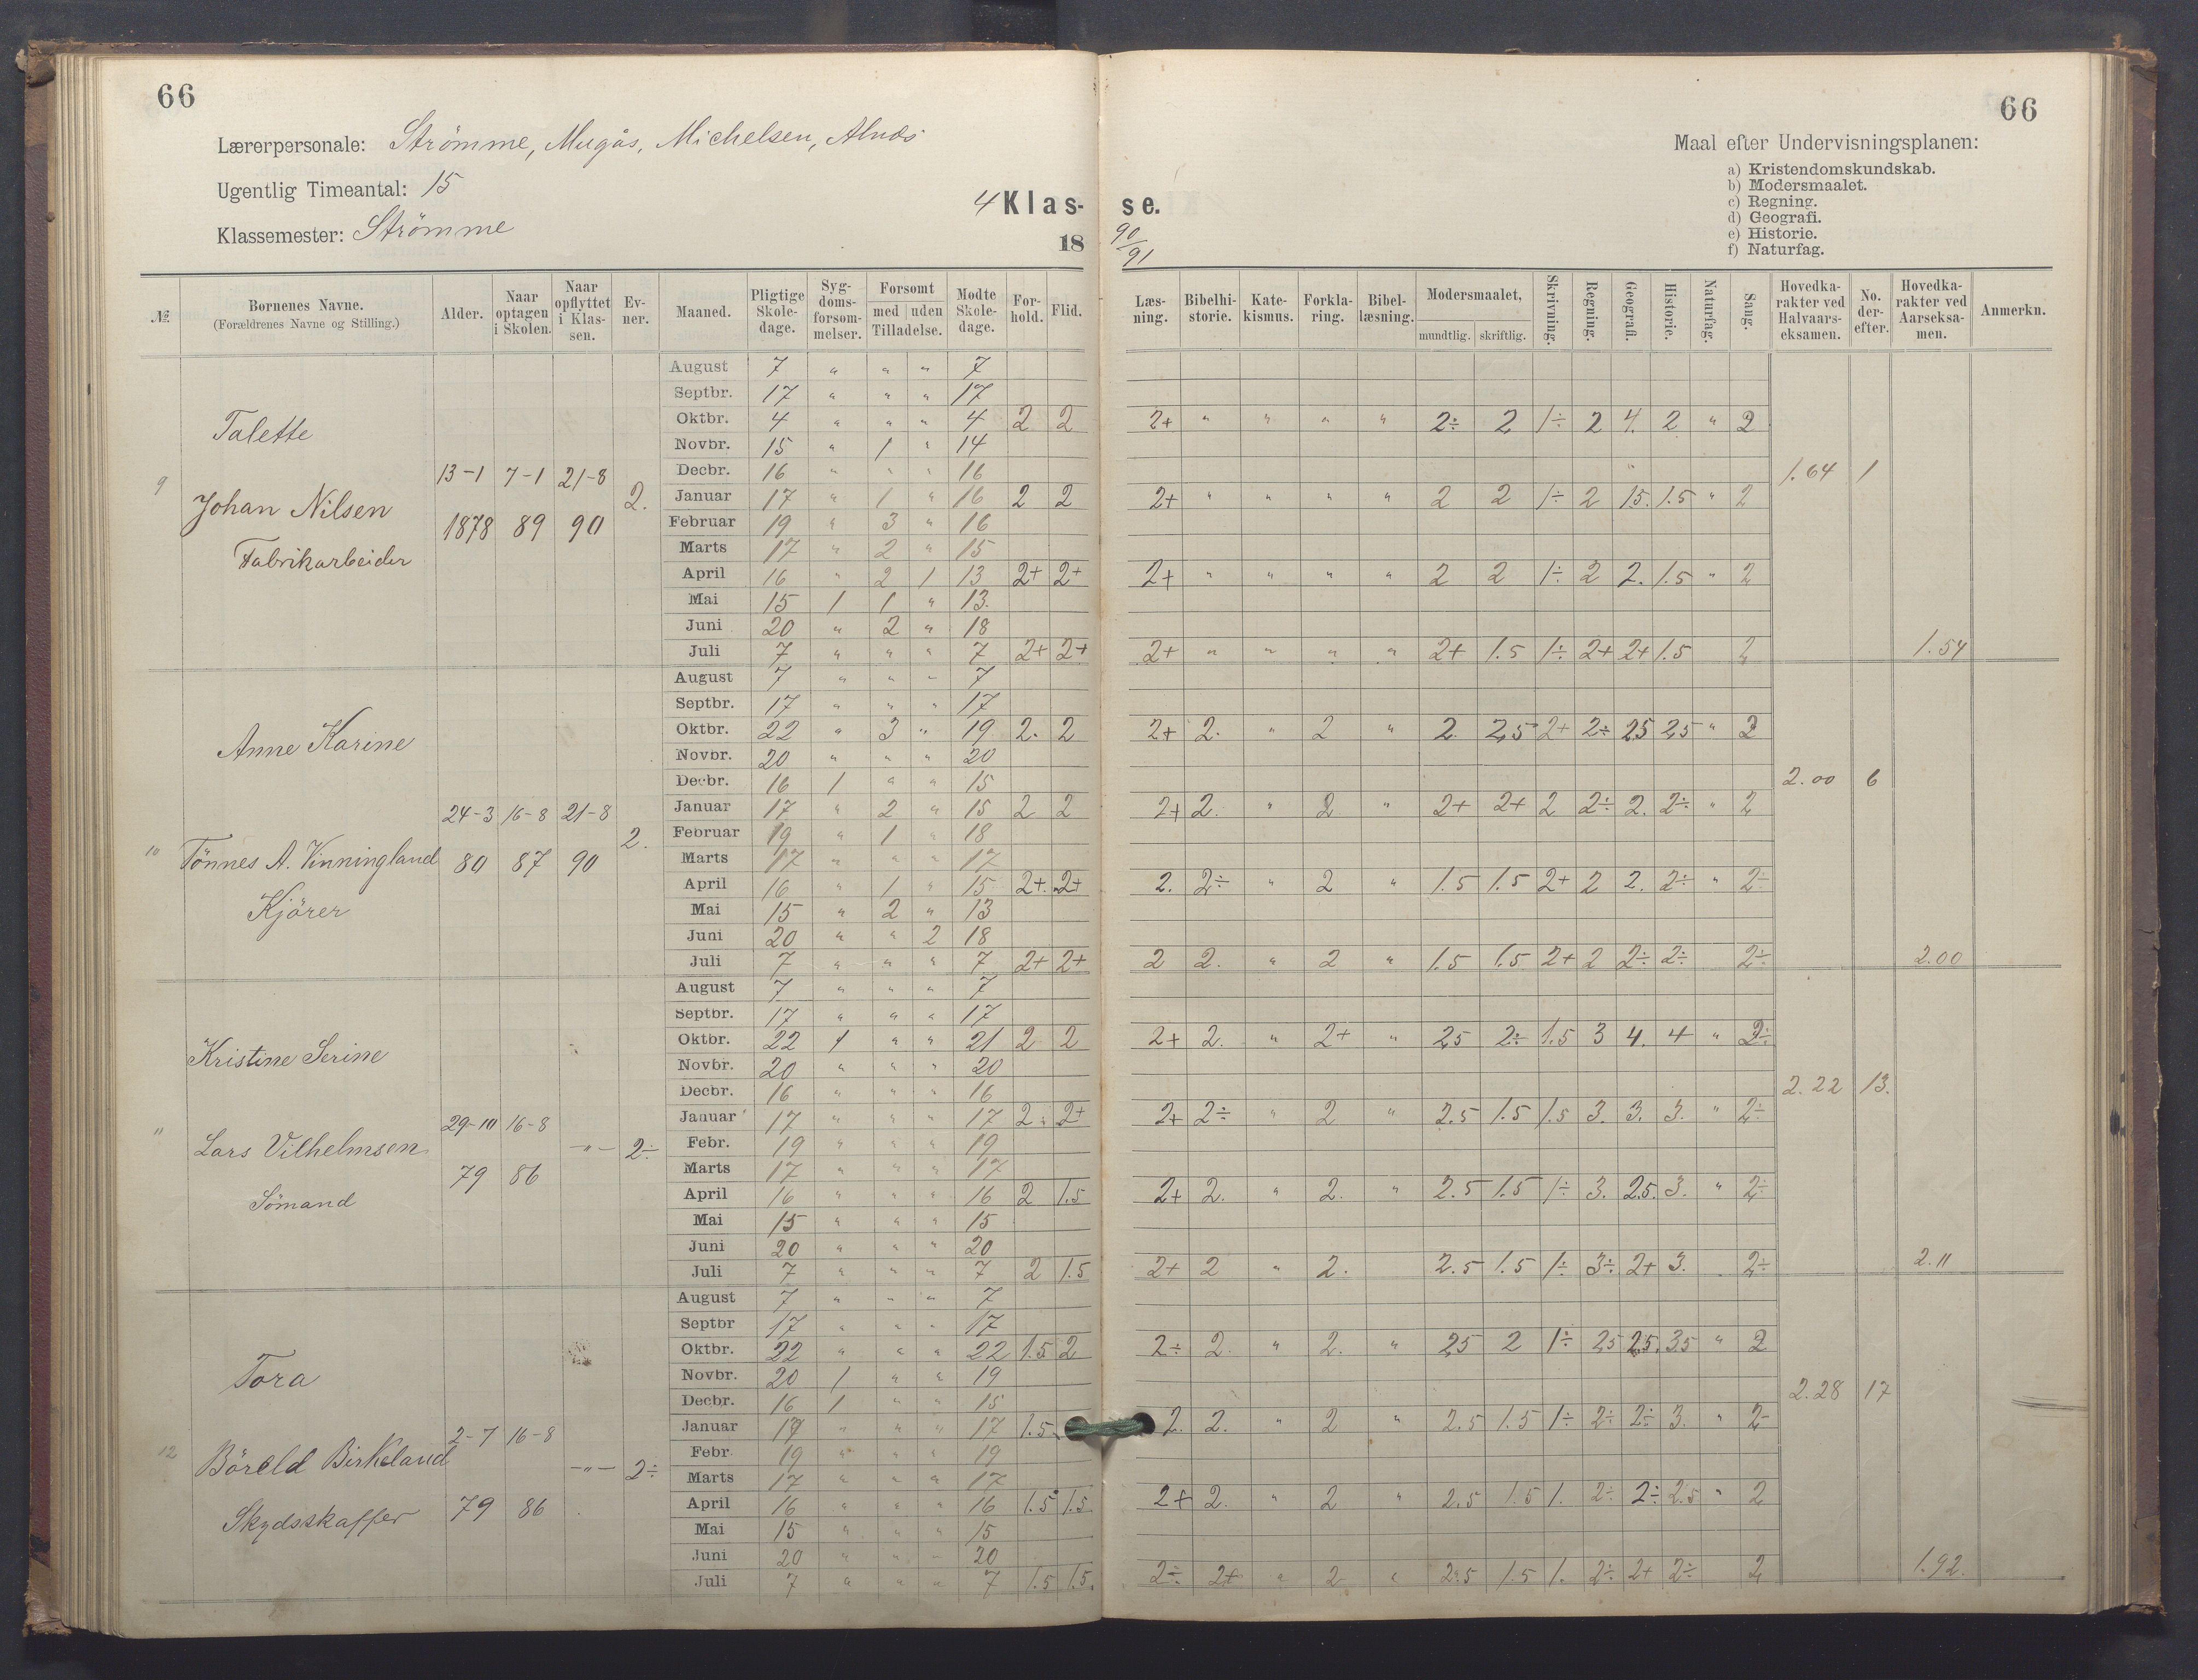 66
66
Lærerpersonale: Strömme, Mugås, Michelsen, Alnæs
Ugentlig Timeantal: 15
Klassemester: Strömme
4 Klas- se.
18 90/91
Maal efter Undervisningsplanen:
a) Kristendomskundskab.
b) Modersmaalet.
c) Regning.
d) Geografi.
e) Historie.
f) Naturfag.
№ Børnenes Navne. (Forældrenes Navne og Stilling.) Alder. Naar optagen i Skolen. Naar opflyttet i Klassen. Evner. Maaned. Pligtige Skoledage. Sygdomsforsømmelser. Forsømt med uden Tilladelse. Mødte Skoledage. Forhold. Flid. Læsning. Bibelhistorie. Katekismus. Forklaring. Bibellæsning. Modersmaalet, mundtlig. skriftlig. Skrivning. Regning. Geografi. Historie. Naturfag. Sang. Hovedkarakter ved Halvaarseksamen. No. derefter. Hovedkarakter ved Aarseksamen. Anmerkn.
9 Talette
Johan Nilsen
Fabrikarbeider
13-1 1878 7-1 89 21-8 90 2.
August 7 " " " 7
Septbr. 17 " " " 17
Oktbr. 4 " " " 4 2 2 2+ " " " " 2÷ 2 1÷ 2 4. 2 " 2
Novbr. 15 " 1 " 14
Decbr. 16 " " " 16 1.64 1
Januar 17 " 1 " 16 2 2 2+ " " " " 2 2 1÷ 2 1.5. 1.5 " 2
Februar 19 " 3 " 16
Marts 17 " 2 " 15
April 16 " 2 1 13 2+ 2+ 2+ " " " " 2 2 1÷ 2 2. 1.5 " 2
Mai 15 1 1 " 13.
Juni 20 " 2 " 18
Juli 7 " " " 7 2+ 2+ 2+ " " " " 2+ 1.5 1÷ 2+ 2+ 1.5 2 1.54
10 Anne Karine
Tönnes A. Vinningland
Kjörer
24-3 80 16-8 87 21-8 90 2.
August 7 " " " 7
Septbr. 17 " " " 17
Oktbr. 22 " 3 " 19 2. 2 2+ 2. " 2 " 2 2,5 2+ 2÷ 2.5 2.5 " 2
Novbr. 20 " " " 20
Decbr. 16 1 " " 15 2.00 6
Januar 17 " 2 " 15 2 2 2+ 2. " 2 " 2+ 2+ 2 2÷ 2. 2÷ " 2
Februar 19 " 1 " 18
Marts 17 " " " 17
April 16 " 1 " 15 2+ 2+ 2. 2÷ " 2 " 1.5 1.5 2+ 2 2. 2÷ " 2÷
Mai 15 " 2 " 13
Juni 20 " " 2 18
Juli 7 " " " 7 2+ 2+ 2 2. " 2 " 1.5 1.5 2+ 2 2÷ 2÷ 2÷ 2.00
" Kristine Serine
Lars Vilhelmsen
Sömand
29-10 79 16-8 86 -"- 2÷
August 7 " " " 7
Septbr. 17 " " " 17
Oktbr. 22 1 " " 21 2 2 2+ 2. " 2+ " 2.5 2÷ 1.5 3 4. 4 " 2÷
Novbr. 20 " " " 20
Decbr. 16 " " " 16 2.22 13.
Januar 17 " " " 17 2÷ 2+ 2+ 2÷ " 2 " 2.5 1.5 1.5 3. 3. 3. " 2÷
Febr. 19 " " " 19
Marts 17 " " " 17
April 16 " " " 16 2 1.5 2+ 2. " 2. " 2.5 1.5 1÷ 3. 2.5. 3. " 2÷
Mai 15 " " " 15
Juni 20 " " " 20
Juli 7 " " " 7 2 1.5 2+ 2 " 2. 2.5 1.5 1÷ 3÷ 2+ 3. 2÷ 2.11
12 Tora
Böreld Birkeland
Skydsskaffer
2-7 79 16-8 86 -"- 2÷
August 7 " " " 7
Septbr 17 " " " 17
Oktbr. 22 " " " 22 1.5 2 2÷ 2. " 2. " 2.5 2 1÷ 2.5 2.5. 3.5 " 2
Novbr. 20 1 " " 19
Decbr. 16 1 " " 15 2.28 17
Januar 17 " " " 17 1.5 2. 2. " 2 " 2.5 1.5 1÷ 2÷ 2÷ 3. " 2-
Febr. 19 " " " 19
Marts 17 " " " 17
April 16 " " " 16 1.5 1.5 2+ 2. " 2 " 2.5 1.5 1. 2÷ 2÷ 2.5 " 2
Mai 15 " " " 15
Juni 20 " " " 20
Juli 7 " " " 7 1.5 1.5. 2÷ 2+ " 2 " 2.5 1.5 1. 2÷ 2+ 2÷ 2 1.92.